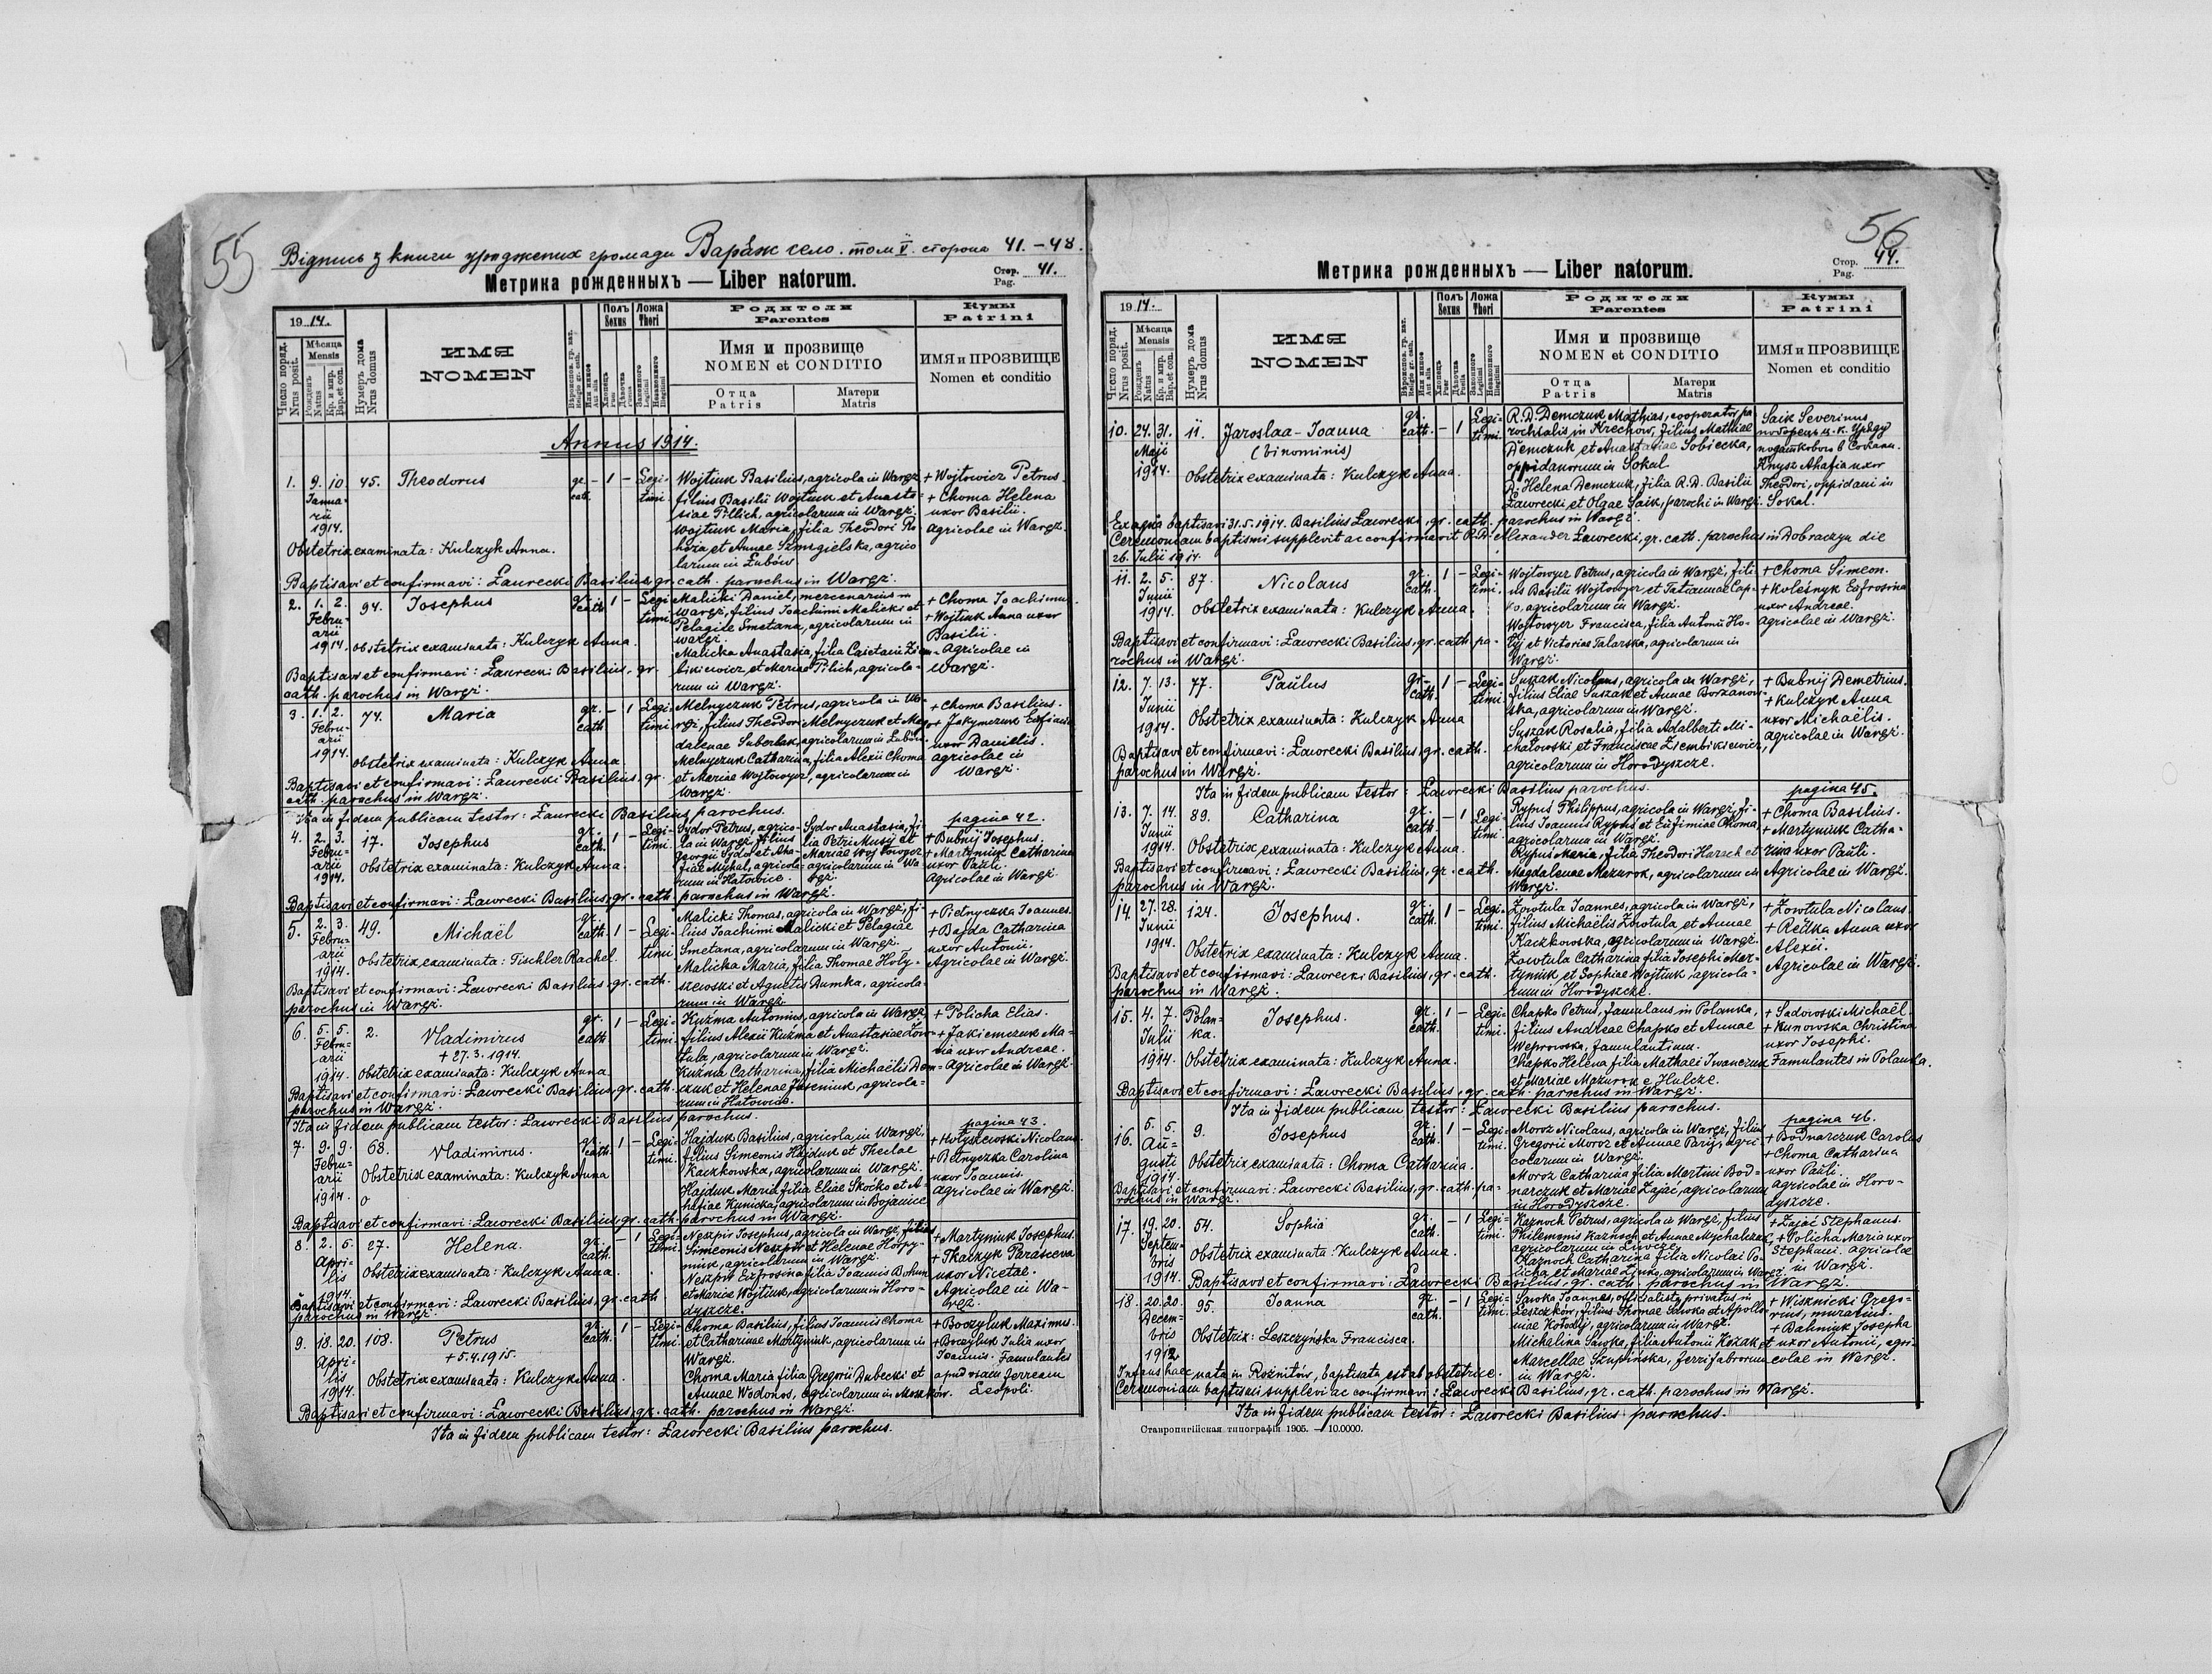 55
Відпись з книги уроджених громади Варяж село. том V. сторона 41. - 48.
Метрика рожденныхъ — Liber natorum.
Стор. Pag. 41.
1914.
Число поряд. Nrus posit.
Мѣсяца Mensis
Рожденъ Natus
Кр. и мир. Bap. et con.
Нумеръ дома Nrus domus
ИМЯ
NOMEN
Полъ Sexus
Ложа Thori
Родители
Parentes
Имя и прозвище
NOMEN et CONDITIO
Отца Patris
Матери Matris
Кумы
Patrini
ИМЯ и ПРОЗВИЩЕ
Nomen et conditio
Annus 1914.
1. 9. 10. Januarii 1914. 45. Theodorus gr. cath. – 1 – Legitimi
Wojtiuk Basilius, agricola in Waręż
filius Basilii Wojtiuk et Anastasiae Pilich, agricolarum in Waręż.
Wojtiuk Maria, filia Theodori
et Annae Szmigielska, agricolarum in Łubów
+ Wojtowicz Petrus
+ Choma Helena
uxor Basilii.
agricolae in Waręż.
Obstetrix examinata: Kulczyk Anna.
Baptisavi et confirmavi: Ławrecki Basilius, gr. cath. parochus in Waręż.
2. 1. 2. Februarii 1914. 94. Josephus gr. cath. 1 – Legitimi
Malicki Daniel, mercenarius in
Waręż, filius Joachimi Malicki et
Pelagiae Smetana, agricolarum in
Waręż.
Malicka Anastasia, filia Caietani Ziembikiewicz, et Mariae Pilich, agricolarum in Waręż.
+ Choma Joachimus
+ Wojtiuk Anna uxor
Basilii.
Agricolae in
Waręż.
obstetrix examinata: Kulczyk Anna.
Baptisavi et confirmavi: Ławrecki Basilius, gr.
cath. parochus in Waręż.
3. 1. 2. Februarii 1914. 74. Maria gr. cath. – 1 Legitimi
Melnyczuk Petrus, agricola in Waręż, filius Theodori Melnyczuk et Magdalenae Suberlak, agricolarum in Łubów.
Melnyczuk Catharina, filia Alexii Choma
et Mariae Wojtowycz, agricolarum in
Waręż.
+ Choma Basilius.
+ Jakymczuk
uxor Danielis.
agricolae in
Waręż.
obstetrix examinata: Kulczyk Anna
Baptisavi et confirmavi: Ławrecki Basilius, gr.
cath. parochus in Waręż.
Ita in fidem publicam testor: Ławrecki Basilius parochus.
pagina 42.
4. 2. 3. Februarii 1914. 17. Josephus gr. cath. 1 – Legitimi.
Sydor Petrus, agricola in Waręż, filius
Georgii Sydor et Ahafiae Myhal, agricolarum in Hatowice.
Sydor Anastasia, filia Petri Musij et
Mariae Wojtowycz
agricolarum in Waręż.
+ Bubnij Josephus.
+ Martyniuk Catharina
uxor Pauli.
Agricolae in Waręż
Obstetrix examinata: Kulczyk Anna.
Baptisavi et confirmavi: Ławrecki Basilius, gr. cath. parochus in Waręż.
5. 2. 3. Februarii 1914. 49. Michaël gr. cath. 1 – Legitimi
Malicki Thomas, agricola in Waręż, filius Joachimi Malicki et Pelagiae
Smetana, agricolarum in Waręż.
Malicka Maria, filia Thomae Holyszewski et Agnetis Dumka, agricolarum in Waręż
+ Pietnyczka Joannes.
+ Bajda Catharina
uxor Antonii.
Agricolae in Waręż.
obstetrix examinata: Tischler Rachel.
Baptisavi et confirmavi: Ławrecki Basilius, gr. cath.
parochus in Waręż.
6. 5. 5. Februarii 1914. 2. Vladimirus gr. cath 1 – Legitimi.
+ 27.3.1914.
Kuźma Antonius, agricola in Waręż,
filius Alexii Kuźma et Anastasiae Żowtula, agricolarum in Waręż.
Kuźma Catharina, filia Michaëlis
et Helenae Juseniuk, agricolarum in Hatowice.
+ Policha Elias.
+ Jakiemczuk Maria uxor Andreae.
Agricolae in Waręż.
Obstetrix examinata: Kulczyk Anna
Baptisavi et confirmavi: Ławrecki Basilius, gr. cath.
parochus in Waręż.
Ita in fidem publicam testor: Ławrecki Basilius parochus.
pagina 43.
7. 9. 9. Februarii 1914. 68. Vladimirus. gr. cath. 1 – Legitimi.
Hajduk Basilius, agricola in Waręż,
filius Simeonis Hajduk et Theclae
Kaczkowska, agricolarum in Waręż.
Hajduk Maria filia Eliae Skoćko et Ahafiae Kunicka, agricolarum in Bojanice
+ Holyszewski Nicolaus
+ Petnyczka Carolina
uxor Joannis.
agricolae in Waręż.
Obstetrix examinata: Kulczyk Anna
Baptisavi et confirmavi: Ławrecki Basilius, gr. cath. parochus in Waręż.
8. 2. 5. Aprilis 1914. 27. Helena. gr. cath. – 1 Legitimi.
Neszpir Josephus, agricola in Waręż, filius
Simeonis Neszpir et Helenae
agricolarum in Waręż.
Neszpir Eufrosina filia Joannis Bohun
et Mariae Wojtiuk, agricolarum in Horodyszcze.
+ Martyniuk Josephus.
+ Tkaczyk Parascewa
uxor Nicetae.
Agricolae in Waręż.
Obstetrix examinata: Kulczyk Anna.
Baptisavi et confirmavi: Ławrecki Basilius, gr. cath
parochus in Waręż.
9. 18. 20. Aprilis 1914. 108. Petrus gr. cath. 1 – Legitimi.
+ 5.4.1915.
Choma Basilius, filius Joannis Choma
et Catharinae Martyniuk, agricolarum in
Waręż.
Choma Maria filia Gregorii Dubecki et
Annae Wodonos, agricolarum in Moszków.
+ Boczyluk Maximus.
+ Boczyluk Julia uxor
Joannis. Famulantes
apud viam ferream
Leopoli.
Obstetrix examinata: Kulczyk Anna.
Baptisavi et confirmavi: Ławrecki Basilius, gr. cath. parochus in Waręż.
Ita in fidem publicam testor: Ławrecki Basilius parochus.
56
Метрика рожденныхъ — Liber natorum.
Стор. Pag. 44.
1914.
Число поряд. Nrus posit.
Мѣсяца Mensis
Рожденъ Natus
Кр. и мир. Bap. et con.
Нумеръ дома Nrus domus
ИМЯ
NOMEN
Полъ Sexus
Ложа Thori
Родители
Parentes
Имя и прозвище
NOMEN et CONDITIO
Отца Patris
Матери Matris
Кумы
Patrini
ИМЯ и ПРОЗВИЩЕ
Nomen et conditio
10. 24. 31. Maji 1914. 11. Jaroslaa - Joanna gr. cath. – 1 Legitimi.
(binominis)
R.D. Demczuk Mathias, cooperator parochialis in Krechow, filius Mathiae
Demczuk et Anastasiae Sobiecka,
oppidanorum in Sokal
D. Helena Demczuk, filia R.D. Basilii
Ławrecki et Olgae Saik, parochi in Waręż.
Saik Severinus
поборець ц. к. Уряду
податкового в Сокали.
Knysz Ahafia uxor
Theodori, oppidani in
Sokal.
Obstetrix examinata: Kulczyk Anna.
Ex aqua baptisavi 31.5.1914. Basilius Ławrecki, gr. cath. parochus in Waręż.
Ceremoniam baptismi supplevit ac confirmavit R.D. Alexander Ławrecki, gr. cath. parochus in Dobraczyn die
26. Julii 1914.
11. 2. 5. Junii 1914. 87. Nicolaus gr. cath. 1 – Legitimi.
Wojtowyer Petrus, agricola in Waręż, filius Basilii Wojtowyer et Tatiannae
agricolarum in Waręż.
Wojtowyer Francisca, filia Antonii
et Victoriae Talarska, agricolarum in
Waręż.
+ Choma Simeon.
+ Koleśnyk Eufrosina
uxor Andreae.
Agricolae in Waręż.
Obstetrix examinata: Kulczyk Anna.
Baptisavi et confirmavi: Ławrecki Basilius, gr. cath. parochus in Waręż.
12. 7. 13. Junii 1914. 77. Paulus gr. cath. 1 – Legitimi.
Suszak Nicolaus, agricola in Waręż,
filius Eliae Suszak et Annae Borzanowska, agricolarum in Waręż.
Suszak Rosalia, filia Adalberti Michałowski et Franciscae Ziembikiewicz,
agricolarum in Horodyszcze.
+ Bubnij Demetrius.
+ Kulczyk Anna
uxor Michaëlis.
agricolae in Waręż.
Obstetrix examinata: Kulczyk Anna
Baptisavi et confirmavi: Ławrecki Basilius, gr. cath.
parochus in Waręż.
Ita in fidem publicam testor: Ławrecki Basilius parochus.
pagina 45.
13. 7. 14. Junii 1914. 89. Catharina gr. cath. – 1 Legitimi.
Rypuś Philippus, agricola in Waręż, filius Joannis Rypuś et Eufimiae Choma,
agricolarum in Waręż.
Rypuś Maria, filia Theodori Harach et
Magdalenae Mazurok, agricolarum in
Waręż.
+ Choma Basilius.
+ Martyniuk Catharina uxor Pauli.
Agricolae in Waręż.
Obstetrix examinata: Kulczyk Anna.
Baptisavi et confirmavi: Ławrecki Basilius, gr. cath.
parochus in Waręż.
14. 27. 28. Junii 1914. 124. Josephus. gr. cath. 1 – Legitimi.
Żowtula Joannes, agricola in Waręż,
filius Michaëlis Żowtula, et Annae
Kaczkowska, agricolarum in Waręż.
Żowtula Catharina filia Josephi Martyniuk et Sophiae Wojtiuk, agricolarum in Horodyszcze.
+ Żowtula Nicolaus.
+ Redka Anna uxor
Alexii.
Agricolae in Waręż.
Obstetrix examinata: Kulczyk Anna.
Baptisavi et confirmavi: Ławrecki Basilius, gr. cath.
parochus in Waręż.
15. 4. 7. Julii 1914. Polanka. Josephus. gr. cath. 1 – Legitimi.
Chapko Petrus, famulans in Polanka,
filius Andreae Chapko et Annae
Weprowska, famulantium.
Chapko Helena filia Mathaei Iwanczuk
et Mariae Mazurok e Hulcze.
+ Sadowski Michaël.
+ Kunowska Christina
uxor Josephi.
Famulantes in Polanka.
Obstetrix examinata: Kulczyk Anna.
Baptisavi et confirmavi: Ławrecki Basilius, gr. cath. parochus in Waręż.
Ita in fidem publicam testor: Ławrecki Basilius parochus.
pagina 46.
16. 5. 5. Augusti 1914. 9. Josephus gr. cath. 1 – Legitimi.
Moroz Nicolaus, agricola in Waręż, filius
Gregorii Moroz et Annae Parij, agricolarum in Waręż.
Moroz Catharina filia Martini Bodnarczuk et Mariae Zając, agricolarum
in Horodyszcze.
+ Bodnarczuk Carolus
+ Choma Catharina
uxor Pauli.
agricolae in Horodyszcze.
Obstetrix examinata: Choma Catharina.
Baptisavi et confirmavi: Ławrecki Basilius, gr. cath. parochus in Waręż.
17. 19. 20. Septembris 1914. 54. Sophia gr. cath. – 1 Legitimi.
Kaznoch Petrus, agricola in Waręż, filius
Philemonis Kaznoch et Annae Mychalczuk,
agricolarum in Liwcze.
Kaznoch Catharina filia Nicolai Policha, et Mariae agricolarum in Waręż.
+ Zając Stephanus.
+ Policha Maria uxor
Stephani. agricolae
in Waręż.
Obstetrix examinata: Kulczyk Anna.
Baptisavi et confirmavi: Ławrecki Basilius, gr. cath. parochus in Waręż.
18. 20. 20. Decembris 1912. 95. Joanna gr. cath. – 1 Legitimi.
Sawka Joannes, officialista privatus in
Leszczków, filius Thomae Sawka et Apolloniae Kołodij, agricolarum in Waręż.
Michelina Sawka, filia Antonii Kozak et
Marcellae Szupińska, ferrifabrorum
in Waręż.
+ Wisznicki Gregorius, murarius.
+ Bahniuk Josepha
uxor Antonii, agricolae in Waręż.
Obstetrix: Leszczyńska Francisca.
Infans haec nata in Rożnitów, baptisata est ab obstetrice.
Ceremoniam baptismi supplevi ac confirmavi: Ławrecki Basilius, gr. cath. parochus in Waręż.
Ita in fidem publicam testor: Ławrecki Basilius parochus.
Ставропигійская типографія 1905. — 10.0000.